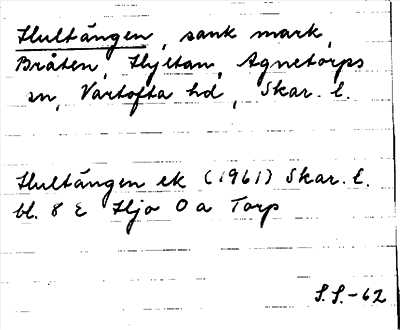 Hultängen, sank mark,
Bråten, Hyltan, Agnetorps
sn, Vartofta hd, Skar. l.
Hultängen ek (1961) Skar. l.
bl. 8 E Hjo 0 a Torp
S.S.-62